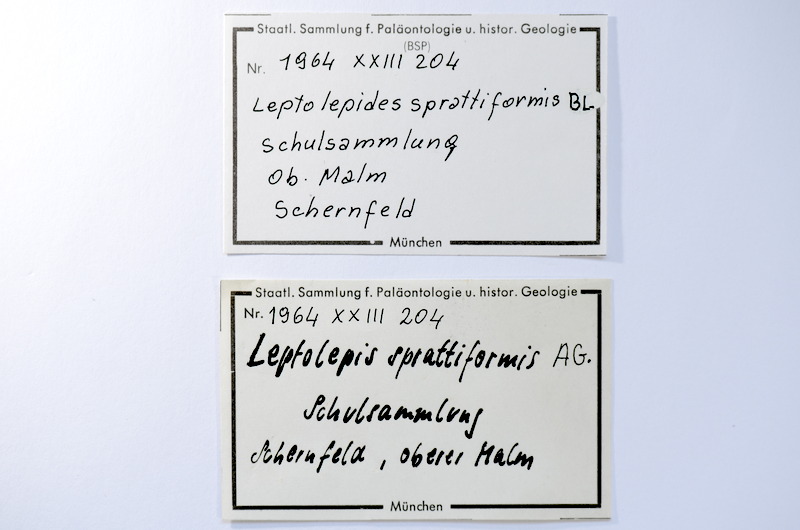 Staatl. Sammlung f. Paläontologie u. histor. Geologie
(BSP)
Nr. 1964 XXIII 204
Leptolepides sprattiformis BL.
Schulsammlung
Ob. Malm
Schernfeld
München
Staatl. Sammlung f. Paläontologie u. histor. Geologie
Nr. 1964 XXIII 204
Leptolepis sprattiformis AG.
Schulsammlung
Schernfeld, oberer Malm
München